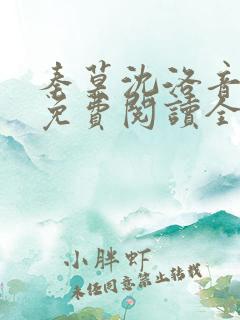 秦墓沈洛音
免費閱讀全
小胖虾
未经同意禁止转载